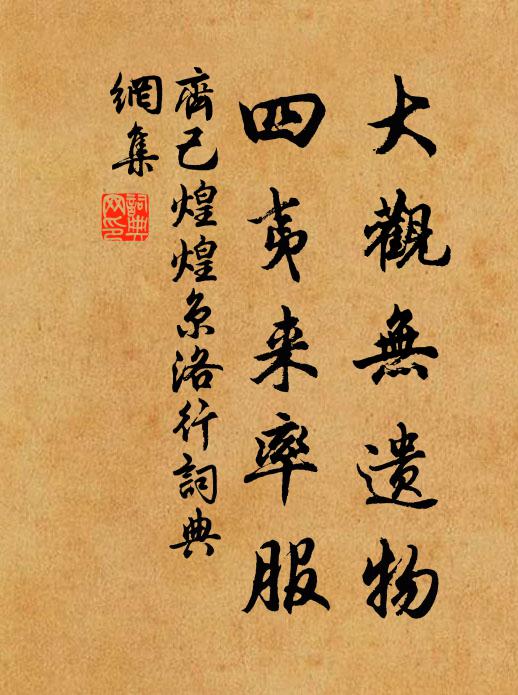 大觀無遺物
四夷来率服
齊己煌煌京洛行詞典
網集
詞典
网印